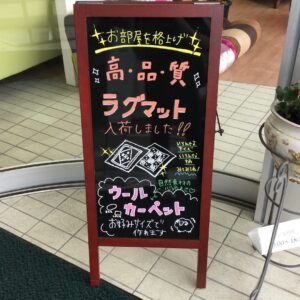 お部屋を格上げ
高・品・質
ラグマット
入荷しました!!
自然素材の
ウール
カーペット
お好みサイズで
作れます